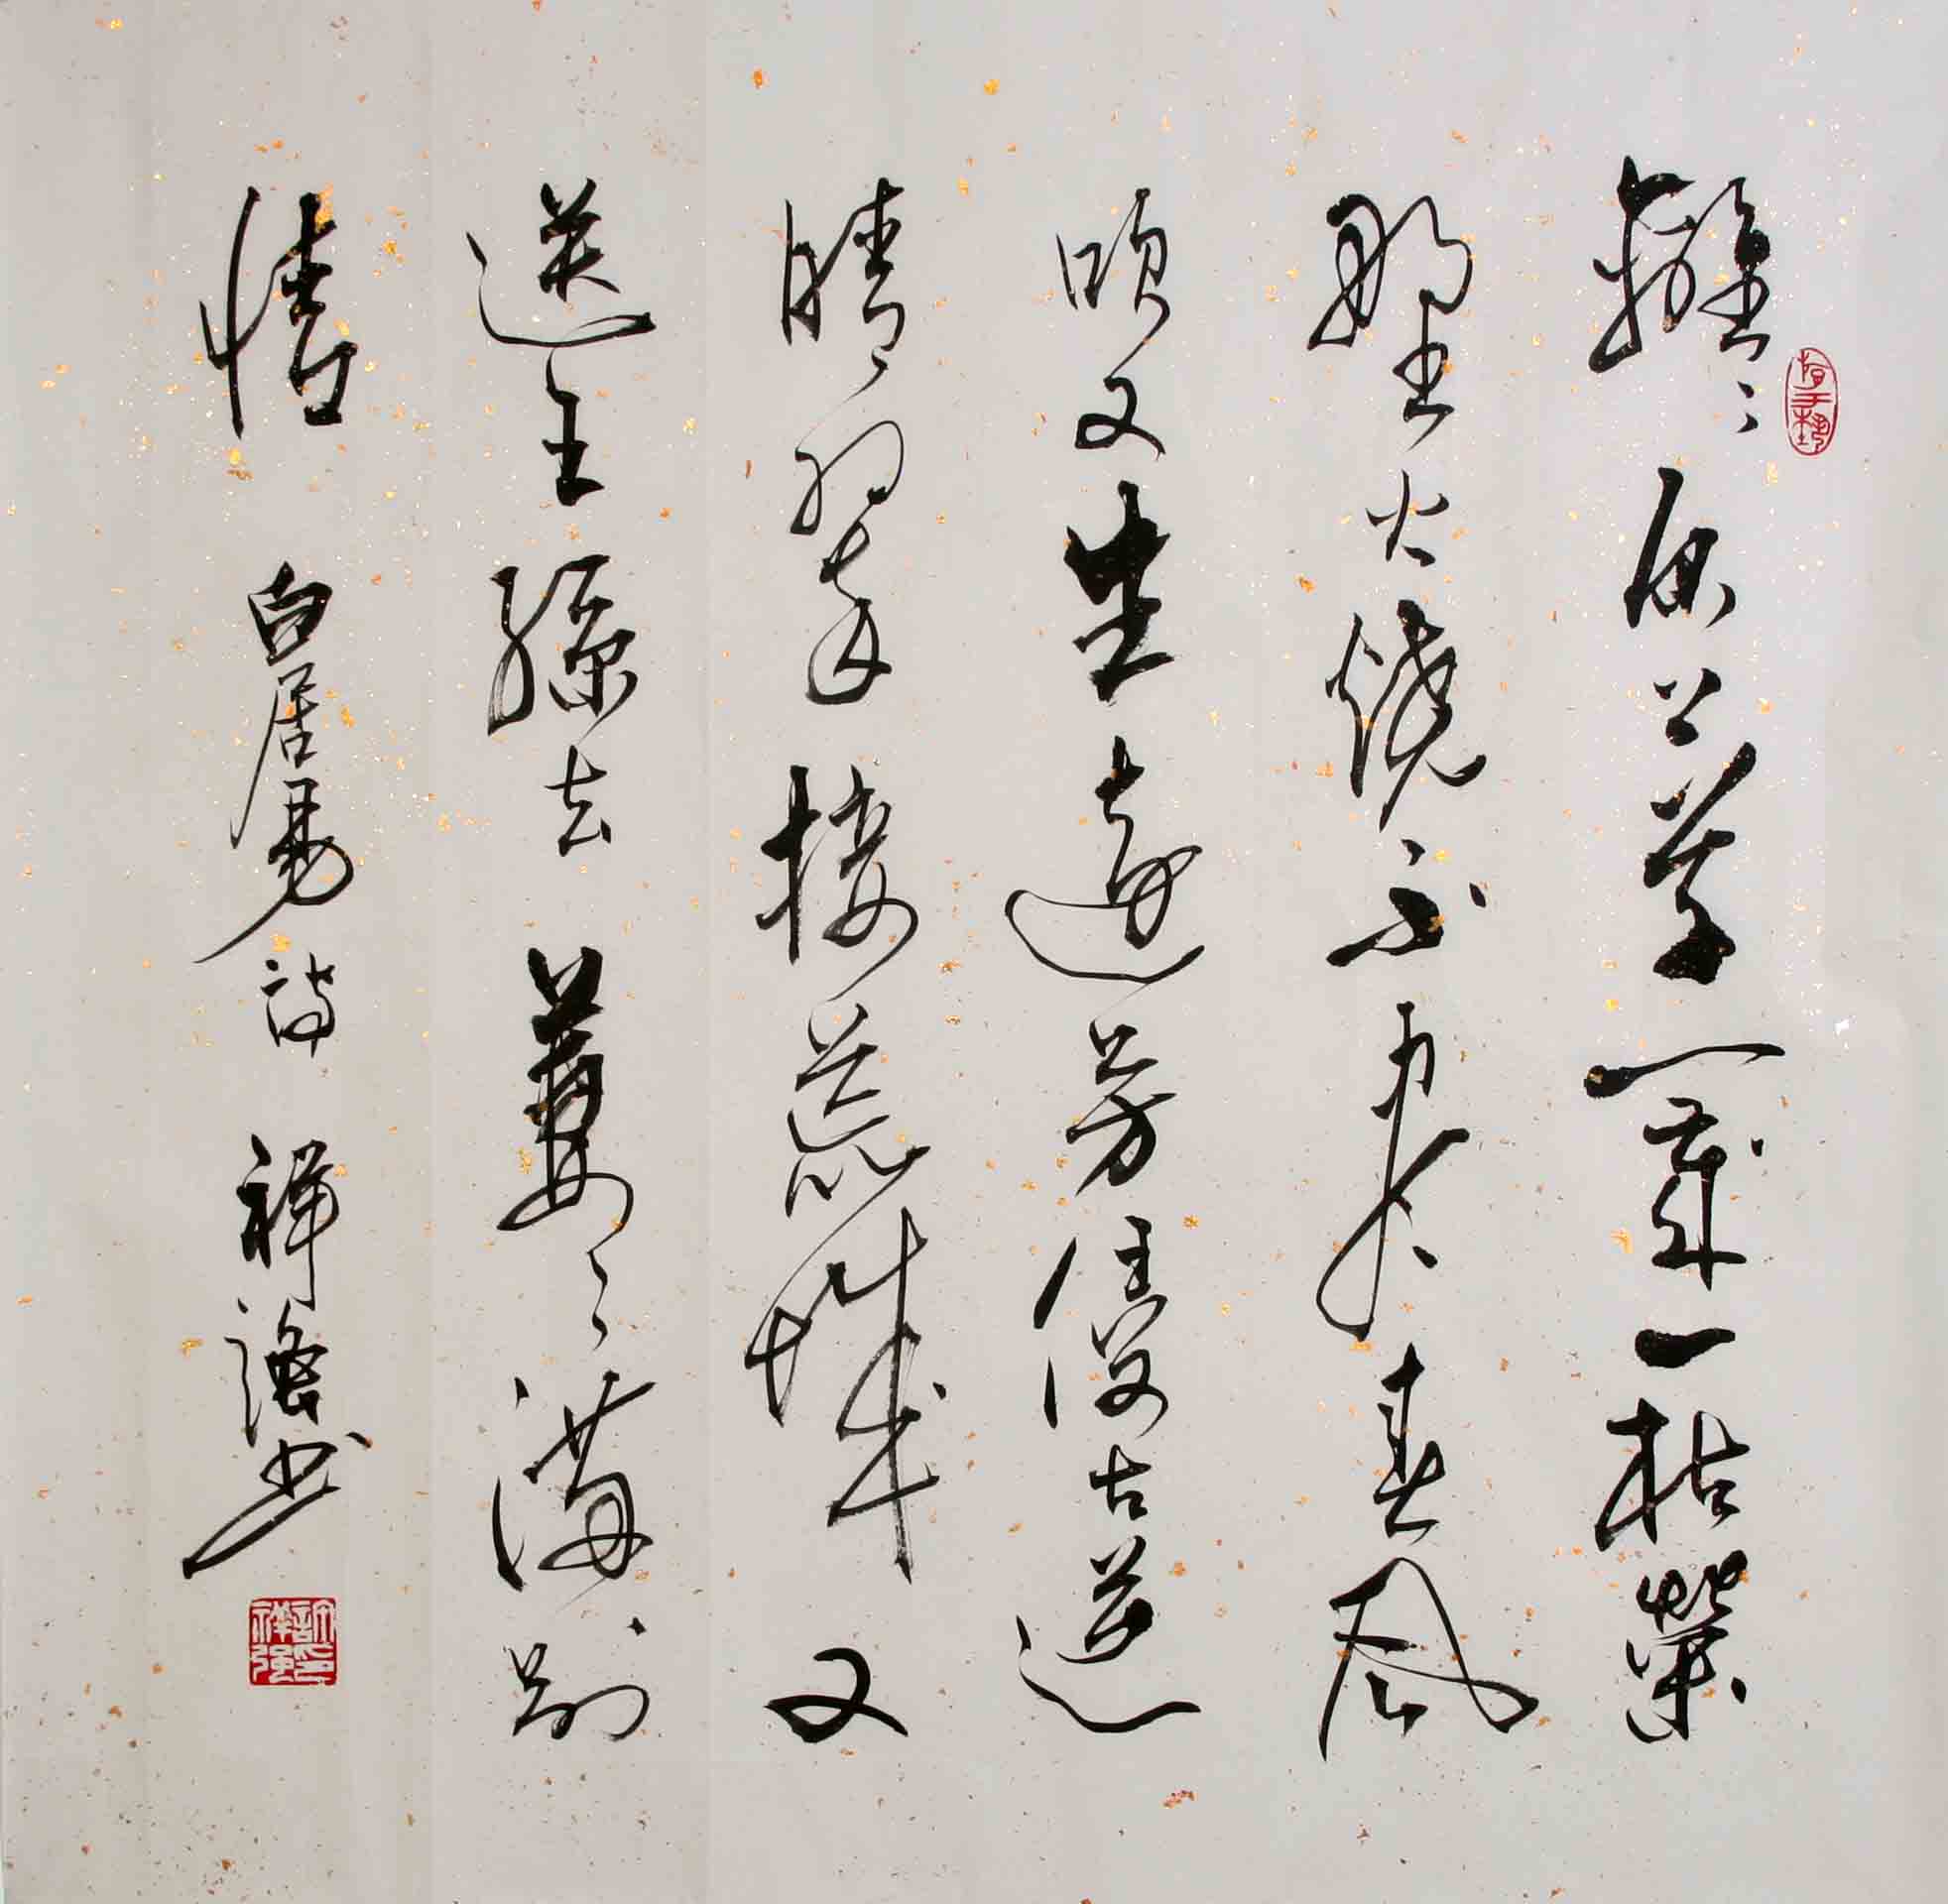 離々原上草一歲一枯榮
野火燒不盡春風
吹又生遠芳侵古道
晴翠接荒城又
送王孫去萋々滿別
情 白居易詩 祥强書
許印祥强